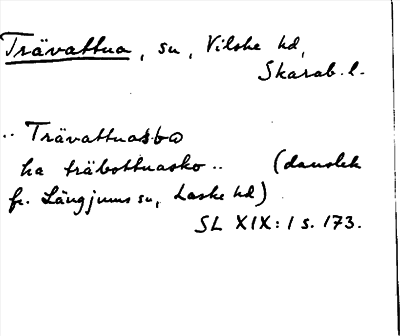 Trävattna, sn, Vilske hd,
Skarab. l.
.. Trävattnasbo
ha träbottnasko .. (danslek
fr. Längjums sn, Laske hd)
SL XIX:1 s. 173.